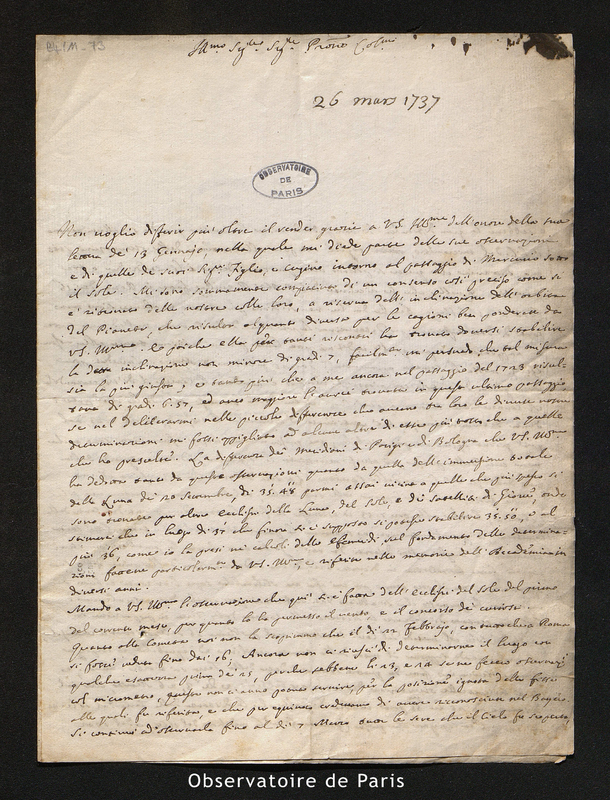 B4/11-73
Illmo Sigre Sigre Prone Colmo
26 mars 1737
OBSERVATOIRE
DE
PARIS
Non voglio differir più oltre il render grazie a VS. Illma dell'onore della sua
lettera de' 13 Gennajo, nella quale mi diede parte delle sue osservazioni
e di quelle de' suoi Sigri Figlio, e cugino intorno al passaggio di Mercurio sotto
il Sole. Mi sono sommamente compiaciuto di un consenso così preciso come se
è ritrovato delle nostre colle loro, a riserva dell'inclinazione dell'orbita
del Pianeta, che risultò alquanto diversa per le cagioni ben ponderate da
VS. Illma. E poiche ella per tanti riscontri ha trovato doversi stabilire
la detta inclinazione non minore di gradi 7, facilmte mi persuado che tal misura
sia la più giusta, e tanto più che a me ancora nel passaggio del 1723 risul-
tava di gradi 6.57, ed anco maggiore l'avrei trovata in questo ultimo passaggio
se nel deliberarmi nelle piccole differenze che aveano tra loro le dinotate nostre
determinazioni mi fossi appigliato ad alcune altre di esse più tosto che a quelle
che ho prescelte. La differenza dei Meridiani di Parigi e di Bologna che VS. Illma
ha dedotta tanto da queste osservazioni quanto da quelle dell'immersione totale
della Luna de' 20 Settembre, di 35.48 parmi assai vicina a quella che più spesso si
sono trovate per altre ecclissi della Luna, del Sole, e de' satelliti di Giove, onde
stimerei che in luogo di 37 che finora si è supposto si potesse stabilire 35.50, o al
più 36, come io la presi nei calcoli delle effemeridi sul fondamento delle determina-
zioni fattene particolarmte da VS. Illma, e riferite nelle memorie dell'Accademia in
diversi anni.
Mando a VS. Illma l'osservazione che qui si è fatta dell'ecclisse del Sole del primo
del corrente mese, per quanto lo ha permesso il vento, e il concorso de' curiosi.
Quanto alla Cometa noi non la scoprimmo che il dì 12 Febbrajo, contuttochè a Roma
si fosse veduta fino dai 6; Ancora non ci riuscì di determinarne il luogo con
qualche esattezza prima de' 15, perchè sebbene li 13, e 14 se ne fecero osservazni
col micrometro, queste non ci anno potuto servire, per la posizione ignota delle fisse
alle quali fu riferita, e che per equivoco credevamo di avere riconosciute nel Bayero.
Si continuò ad osservarla fino al dì 7 Marzo tutte le sere che il Cielo fu scoperto,
Observatoire de Paris